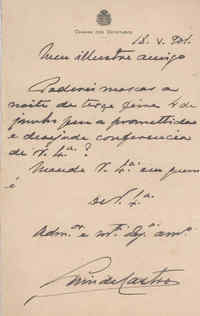 CAMARA DOS DEPUTADOS
18. V. 901.
Meu illustre amigo
Poderei marcar a
noite de terça feira 4 de
junho para a promettida
e desejada conferencia
de V. Ex.ª?
Mande V. Ex.ª em quem
é
De V. Ex.ª
Adm.or e m.to am.º